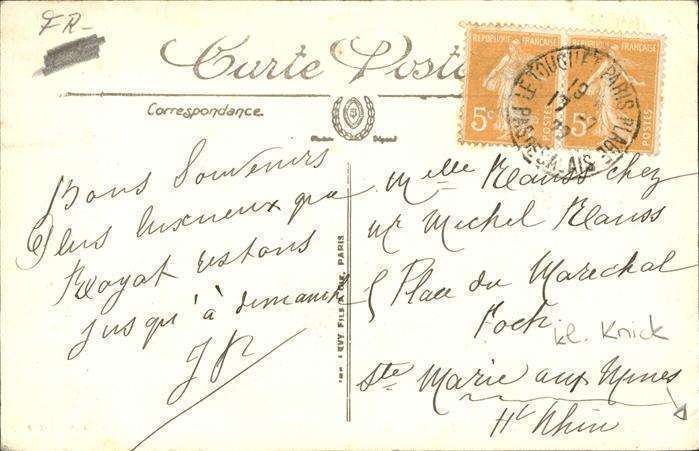 FR-
Carte Posta
Correspondance.
REPUBLIQUE FRANÇAISE
5c
POSTES
REPUBLIQUE FRANÇAISE
5c
POSTES
LE TOUQUET-PARIS-PLAGE
PAS-DE-CALAIS
Bons Souvenirs
Plus luxueux que
Royat restons
jusqu'à dimanche
LEVY FILS & CIE, PARIS
Melle Klauss chez
Mr Michel Klauss
5 Place du Marechal
Foch
kl. Knick
Ste Marie aux Mines
Ht Rhin